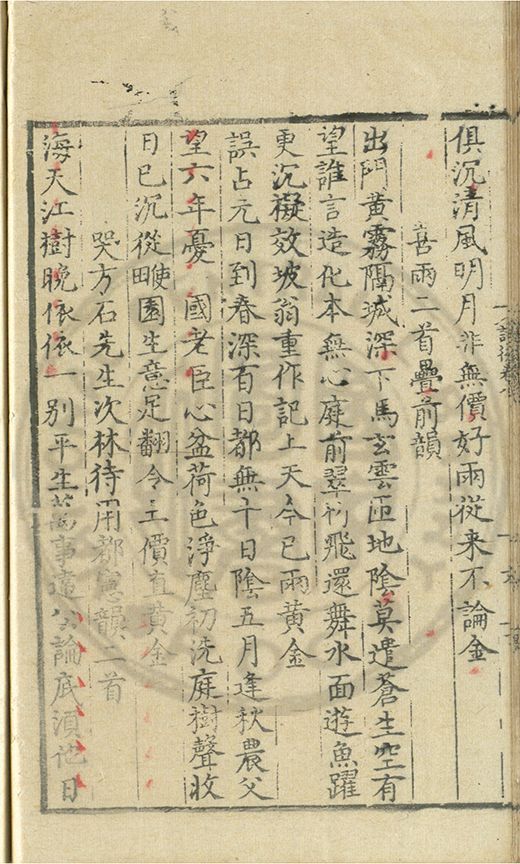 俱沉清風明月非無價好雨從来不論金
喜雨二首疊前韻
出門黄霧隔城深下馬玄雲匝地陰莫遣蒼生空有
望誰言造化本無心庭前翠竹飛還舞水面遊魚躍
更沉擬效坡翁重作記上天今已雨黄金
誤占元日到春深百日都無十日陰五月逢秋農父
望六年憂國老臣心盆荷色淨塵初洗庭樹聲收
日已沉從此園生意足翻令土價直黄金
哭方石先生次林待用都憲韻二首
海天江樹晚依依一别平生萬事違公論底須他日